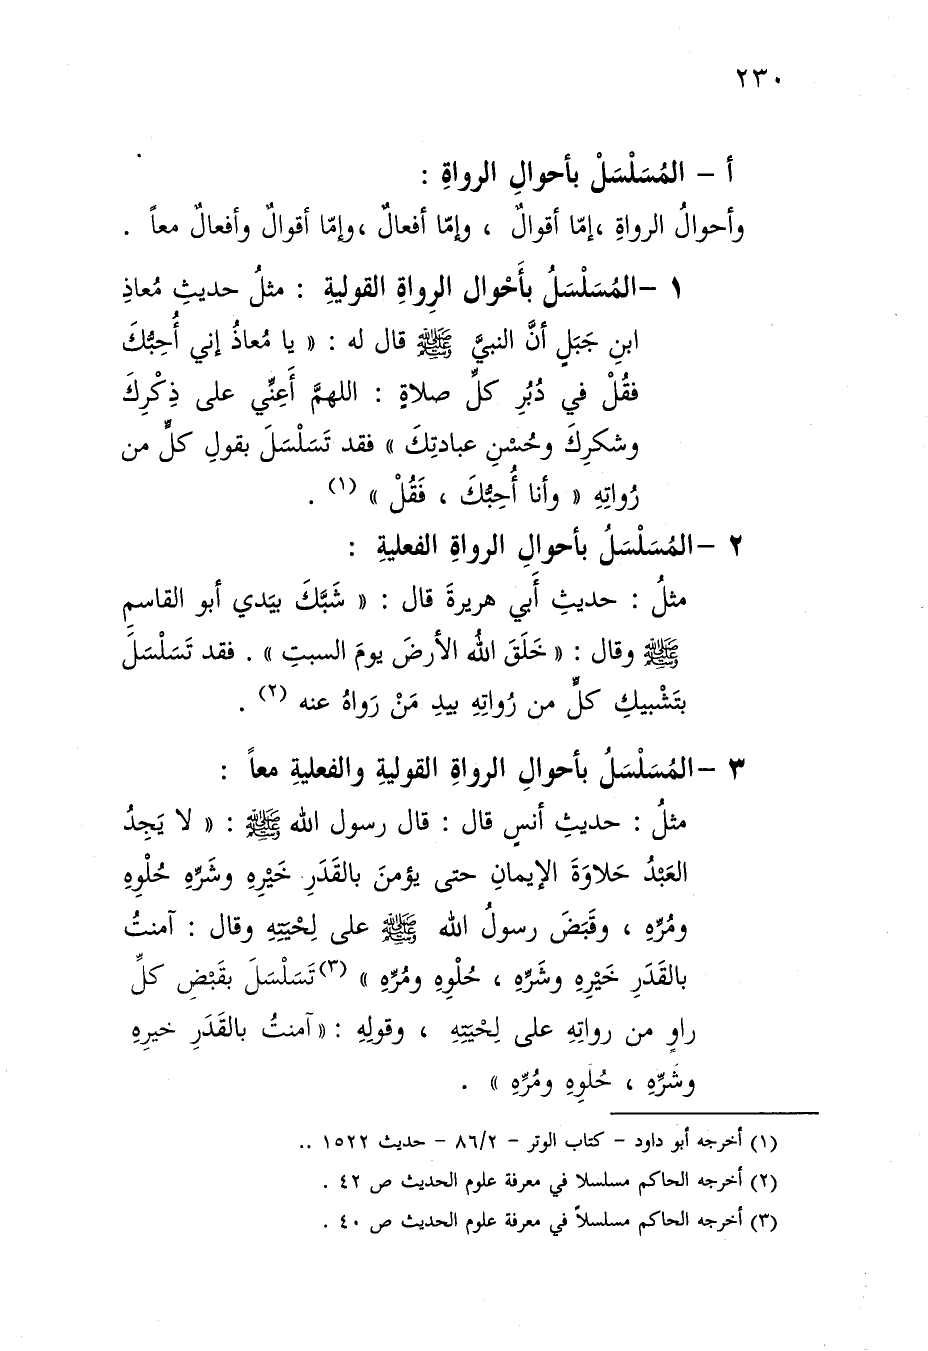 ٢٣٠
أ – المُسَلْسَلْ بأحوالِ الرواةِ :
وأحوالُ الرواةِ ،إمّا أقوالٌ ، وإمّا أفعالٌ ،وإمّا أقوالٌ وأفعالٌ معاً .
١ –المُسَلْسَلُ بأَحْوال الرِواةِ القوليةِ : مثلُ حديثِ مُعاذِ
ابنِ جَبَلٍ أنَّ النبيَّ ﷺ قال له : « يا مُعاذُ إني أُحِبُّكَ
فقُلْ في دُبُرِ كلِّ صلاةٍ : اللهمَّ أَعِنِّي على ذِكْرِكَ
وشكرِكَ وحُسْنِ عبادتِكَ » فقد تَسَلْسَلَ بقولِ كلٍّ من
رُواتِهِ « وأنا أُحِبُّكَ ، فَقُلْ » (١) .
٢ –المُسَلْسَلُ بأحوالِ الرواةِ الفعليةِ :
مثلُ : حديثِ أَبي هريرةَ قال : « شَبَّكَ بيَدي أبو القاسمِ
ﷺ وقال : « خَلَقَ اللهُ الأرضَ يومَ السبتِ » . فقد تَسَلْسَلَ
بتَشْبيكِ كلٍّ من رُواتِهِ بيدِ مَنْ رَواهُ عنه (٢) .
٣ –المُسَلْسَلُ بأحوالِ الرواةِ القوليةِ والفعليةِ معاً :
مثلُ : حديثِ أنسٍ قال : قال رسول الله ﷺ : « لا يَجِدُ
العَبْدُ حَلاوَةَ الإيمانِ حتى يؤمنَ بالقَدَرِ خَيْرِهِ وشَرِّهِ حُلْوِهِ
ومُرِّهِ ، وقَبَضَ رسولُ الله ﷺ على لِحْيَتِهِ وقال : آمنتُ
بالقَدَرِ خَيْرِهِ وشَرِّهِ ، حُلْوِهِ ومُرِّهِ » (٣)تَسَلْسَلَ بقَبْضِ كلِّ
راوٍ من رواتِهِ على لِحْيَتِهِ ، وقولِهِ : « آمنتُ بالقَدَرِ خيرِهِ
وشَرِّهِ ، حُلوِهِ ومُرِّهِ » .
(١) أخرجه أبو داود – كتاب الوتر – ٨٦/٢ – حديث ١٥٢٢ ..
(٢) أخرجه الحاكم مسلسلا في معرفة علوم الحديث ص ٤٢ .
(٣) أخرجه الحاكم مسلسلاً في معرفة علوم الحديث ص ٤٠ .